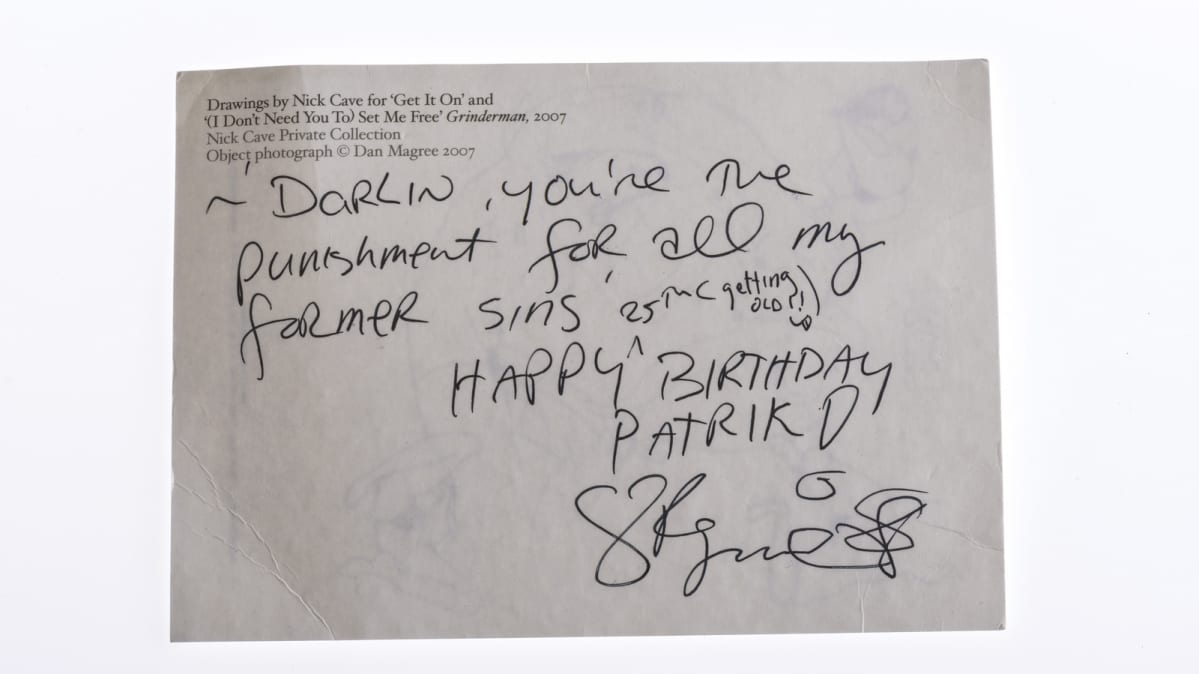 Drawings by Nick Cave for ‘Get It On’ and
‘(I Don’t Need You To) Set Me Free’ Grinderman, 2007
Nick Cave Private Collection
Object photograph © Dan Magree 2007
~ 'DARLIN, you're THE
punishment for all my
former sins'
25TH (getting
OLD?!)
HAPPY ^ BIRTHDAY
PATRIK D